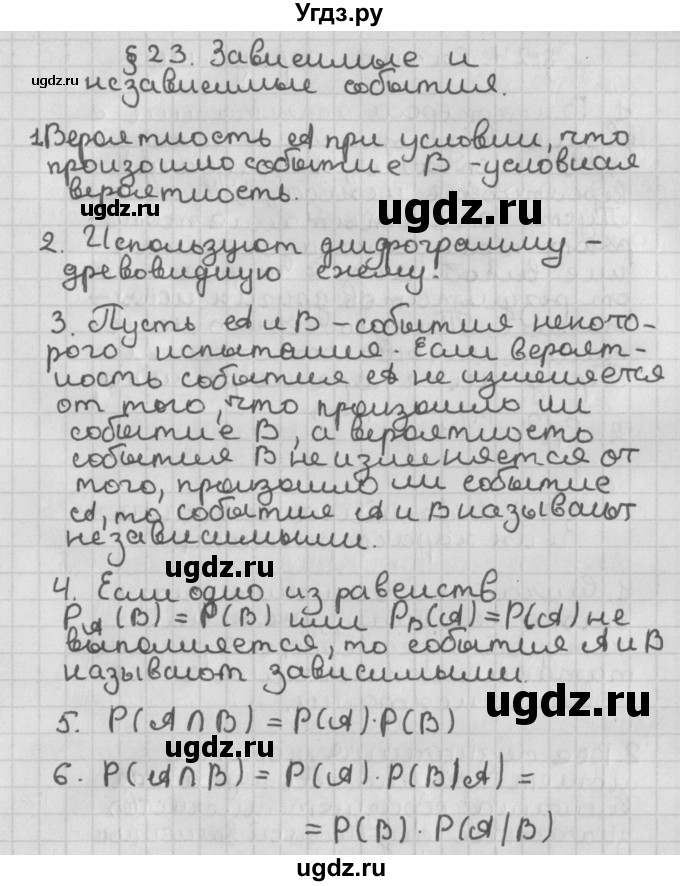 Угдз.ру
§ 23. Зависимые и
ugdz.ru
независимые события.
1. Вероятность A при условии, что
произошло событие B - условная
вероятность.
ugdz.ru
ugdz.ru
2. Используют диаграмму -
древовидную схему.
3. Пусть A и B - события некото-
рого испытания. Если вероят-
ность события A не изменяется
от того, что произошло ли
событие B, а вероятность
события B не изменяется от
того, произошло ли событие
A, то события A и B называют
независимыми.
ugdz.ru
4. Если одно из равенств
P_A (B) = P(B) или P_B(A) = P(A) не
выполняется, то события A и B
называют зависимыми.
ugdz.ru
5. P(A ∩ B) = P(A)·P(B)
ugdz.ru
6. P(A ∩ B) = P(A)·P(B|A) =
= P(B)·P(A/B)
ugdz.ru